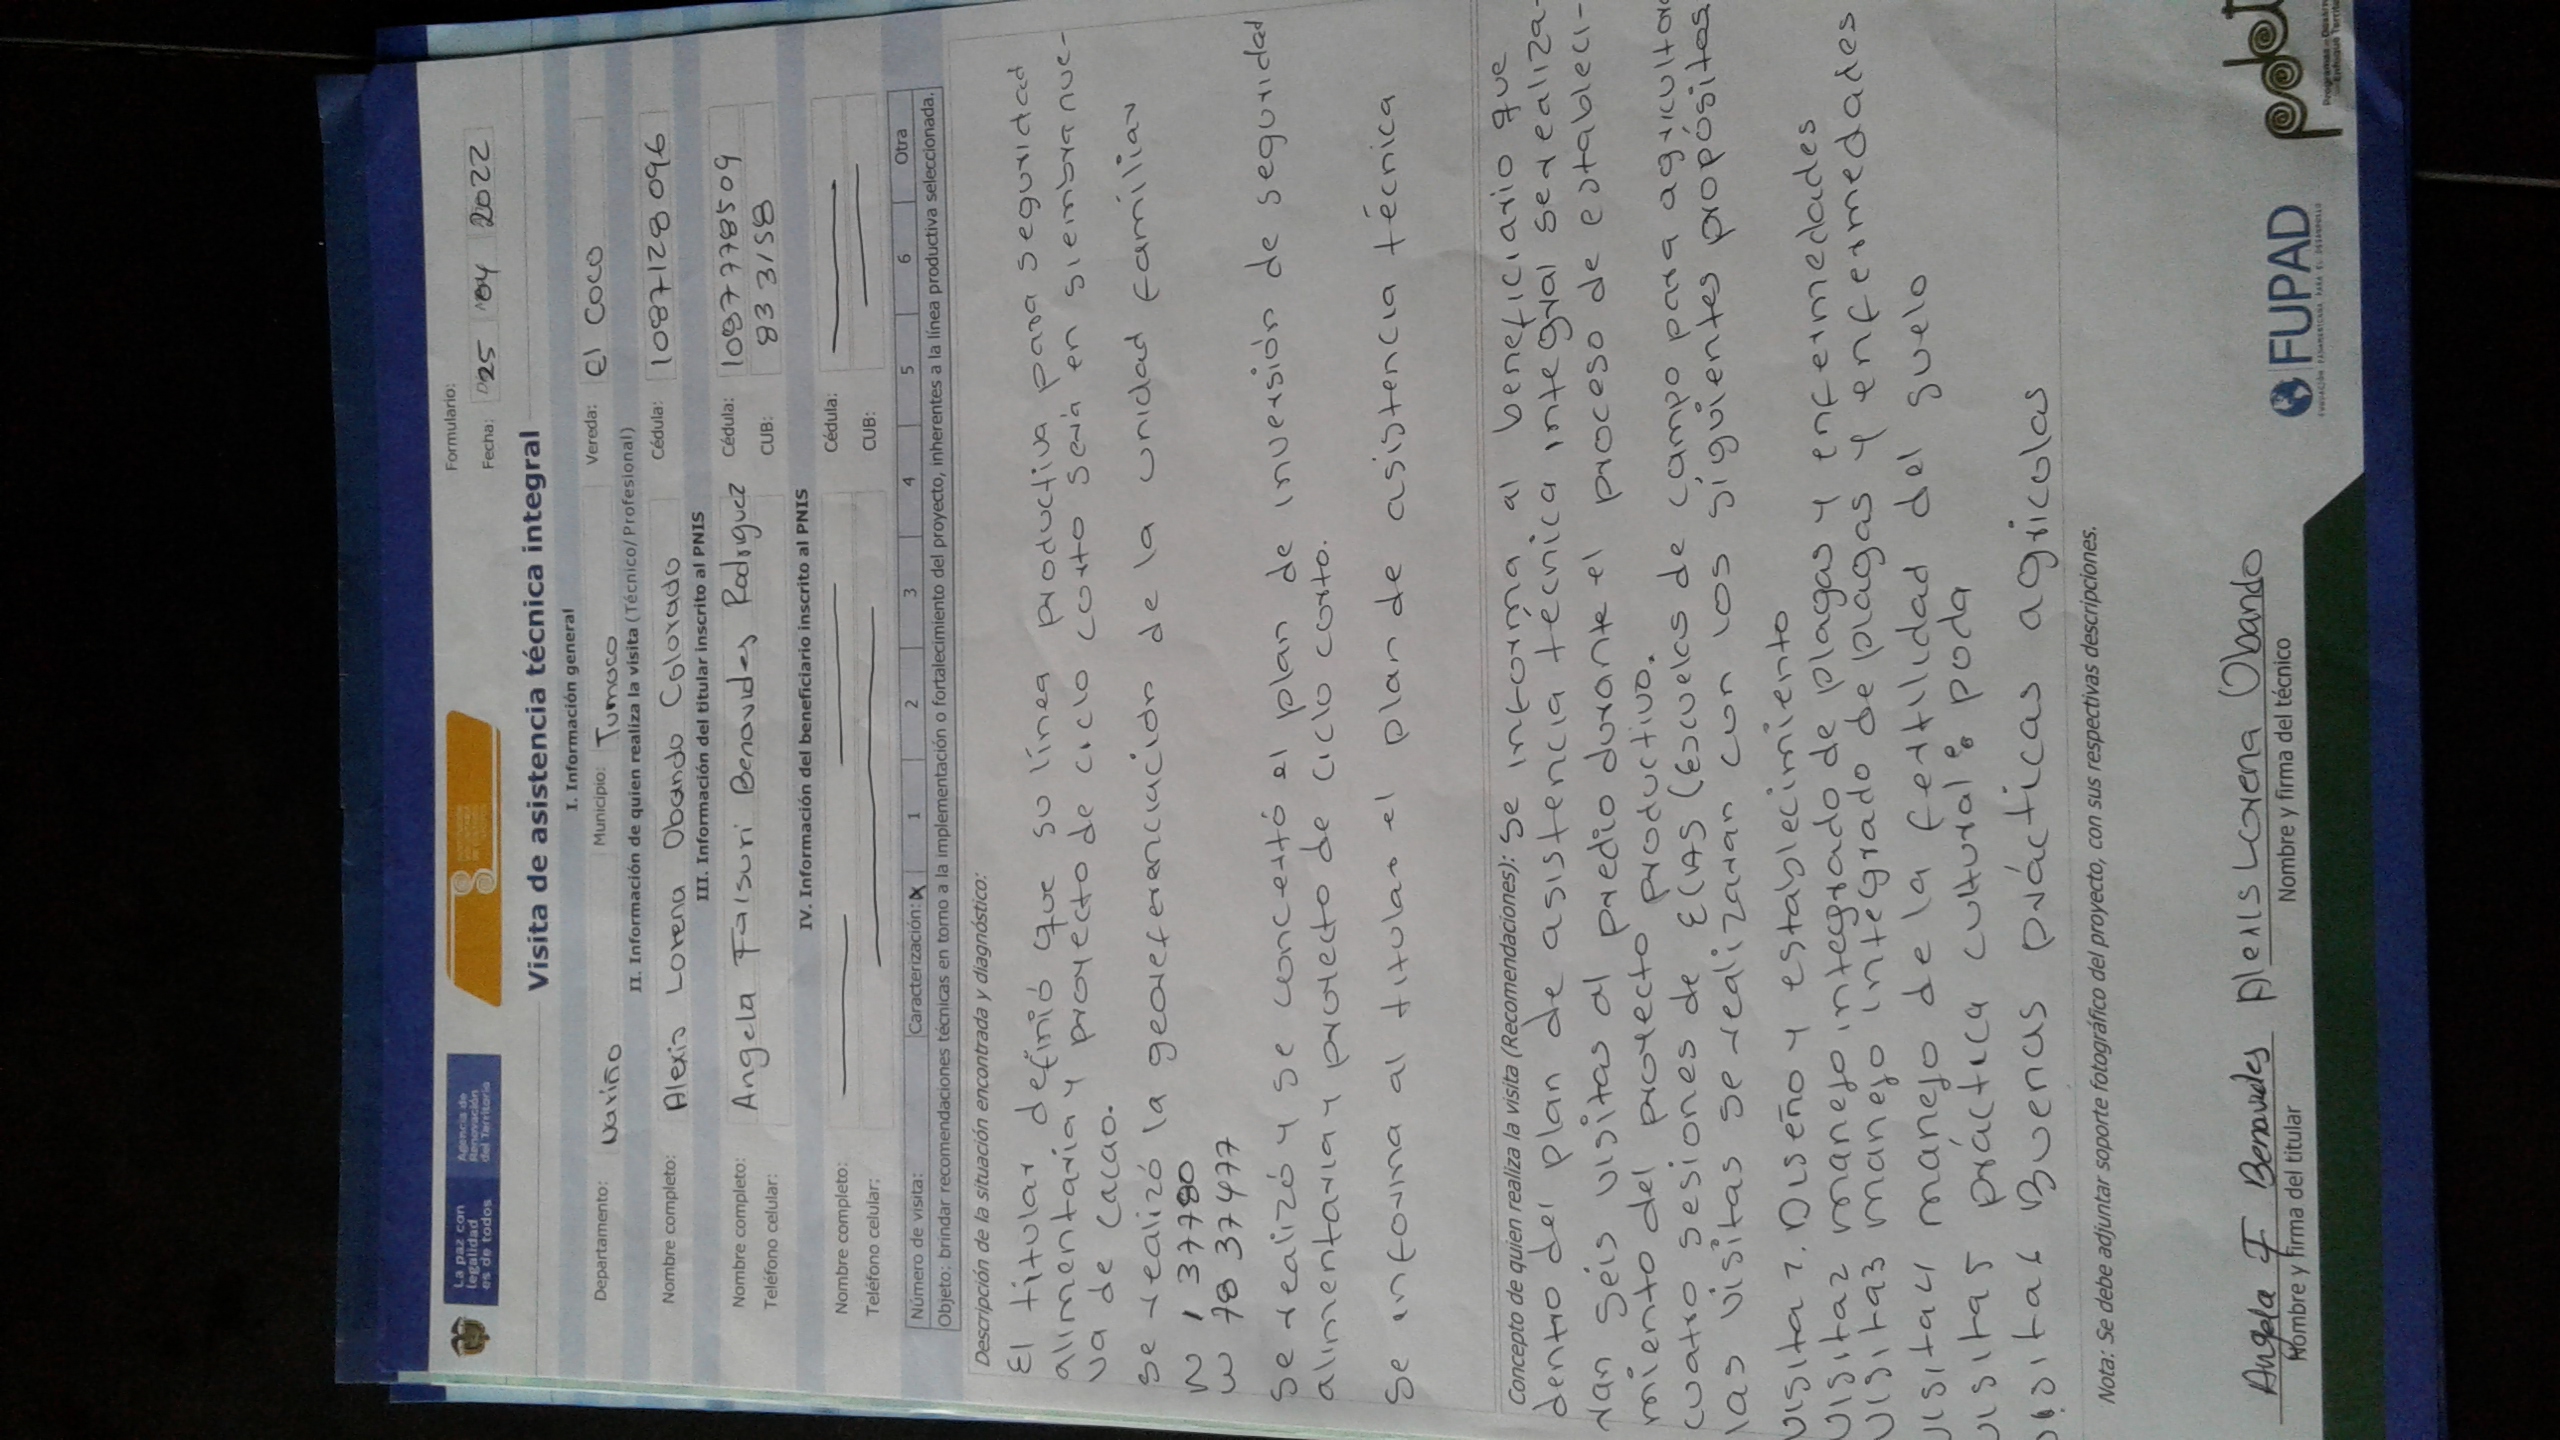 La paz con
legalidad
es de todos
Agencia de
Renovación
del Territorio
Formulario:
Fecha: 25 04 2022
Visita de asistencia técnica integral
I. Información general
Departamento: Nariño Municipio: Tumaco Vereda: El Coco
II. Información de quien realiza la visita (Técnico/Profesional)
Nombre completo: Alexis Lorena Obando Colorado Cédula: 1087128096
III. Información del titular inscrito al PNIS
Nombre completo: Angela Faisuri Benavides Rodriguez Cédula: 1087778509
Teléfono celular: CUB: 833158
IV. Información del beneficiario inscrito al PNIS
Nombre completo: Cédula:
Teléfono celular: CUB:
Número de visita: Caracterización: X 1 2 3 4 5 6 Otra
Objeto: brindar recomendaciones técnicas en torno a la implementación o fortalecimiento del proyecto, inherentes a la línea productiva seleccionada.
Descripción de la situación encontrada y diagnóstico:
El titular definió que su línea productiva para seguridad
alimentaria y proyecto de ciclo corto sería en siembra nue-
va de cacao.
Se realizó la georeferenciación de la unidad familiar
N 1 37780
W 78 37477
Se realizó y se concertó el plan de inversión de seguridad
alimentaria y proyecto de ciclo corto.
Se informa al titular el plan de asistencia técnica
Concepto de quien realiza la visita (Recomendaciones): Se informa al beneficiario que
dentro del plan de asistencia técnica integral se realiza-
ran seis visitas al predio durante el proceso de estableci-
miento del proyecto productivo.
cuatro sesiones de ECAS (Escuelas de campo para agricultore
las visitas se realizaran con los siguientes propósitos
visita 1. Diseño y establecimiento
visita 2 manejo integrado de plagas y enfermedades
visita 3 manejo integrado de plagas y enfermedades
visita 4 manejo de la fertilidad del suelo
visita 5 práctica cultural: poda
visita 6 Buenas prácticas agricolas
Nota: Se debe adjuntar soporte fotográfico del proyecto, con sus respectivas descripciones.
Angela F Benavides Alexis Lorena Obando
Nombre y firma del titular Nombre y firma del técnico
FUPAD
FUNDACIÓN PANAMERICANA PARA EL DESARROLLO
pdet